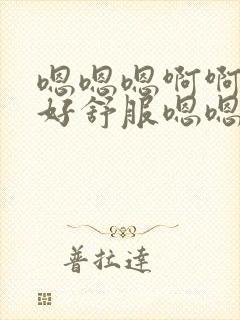 嗯嗯嗯啊啊
好舒服嗯嗯
普拉達